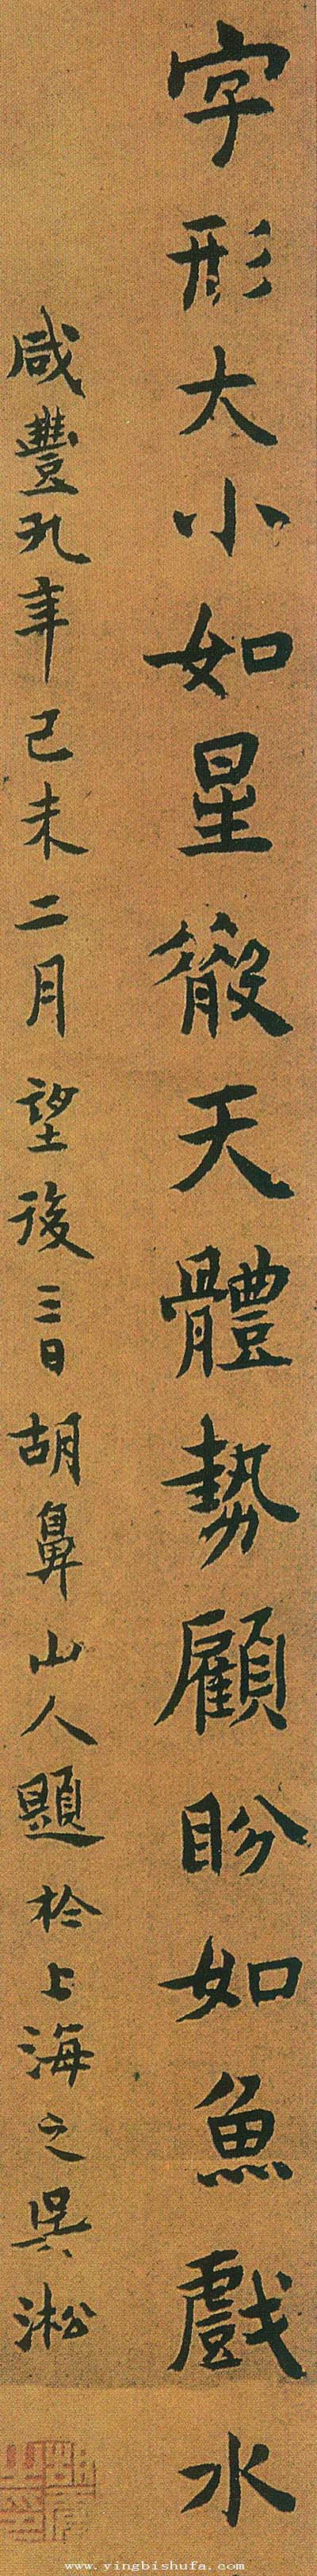 字形大小如星散天體勢顧盼如魚戲水
咸豐九年己未二月望後三日胡鼻山人題於上海之吳淞
www.yingbishufa.com